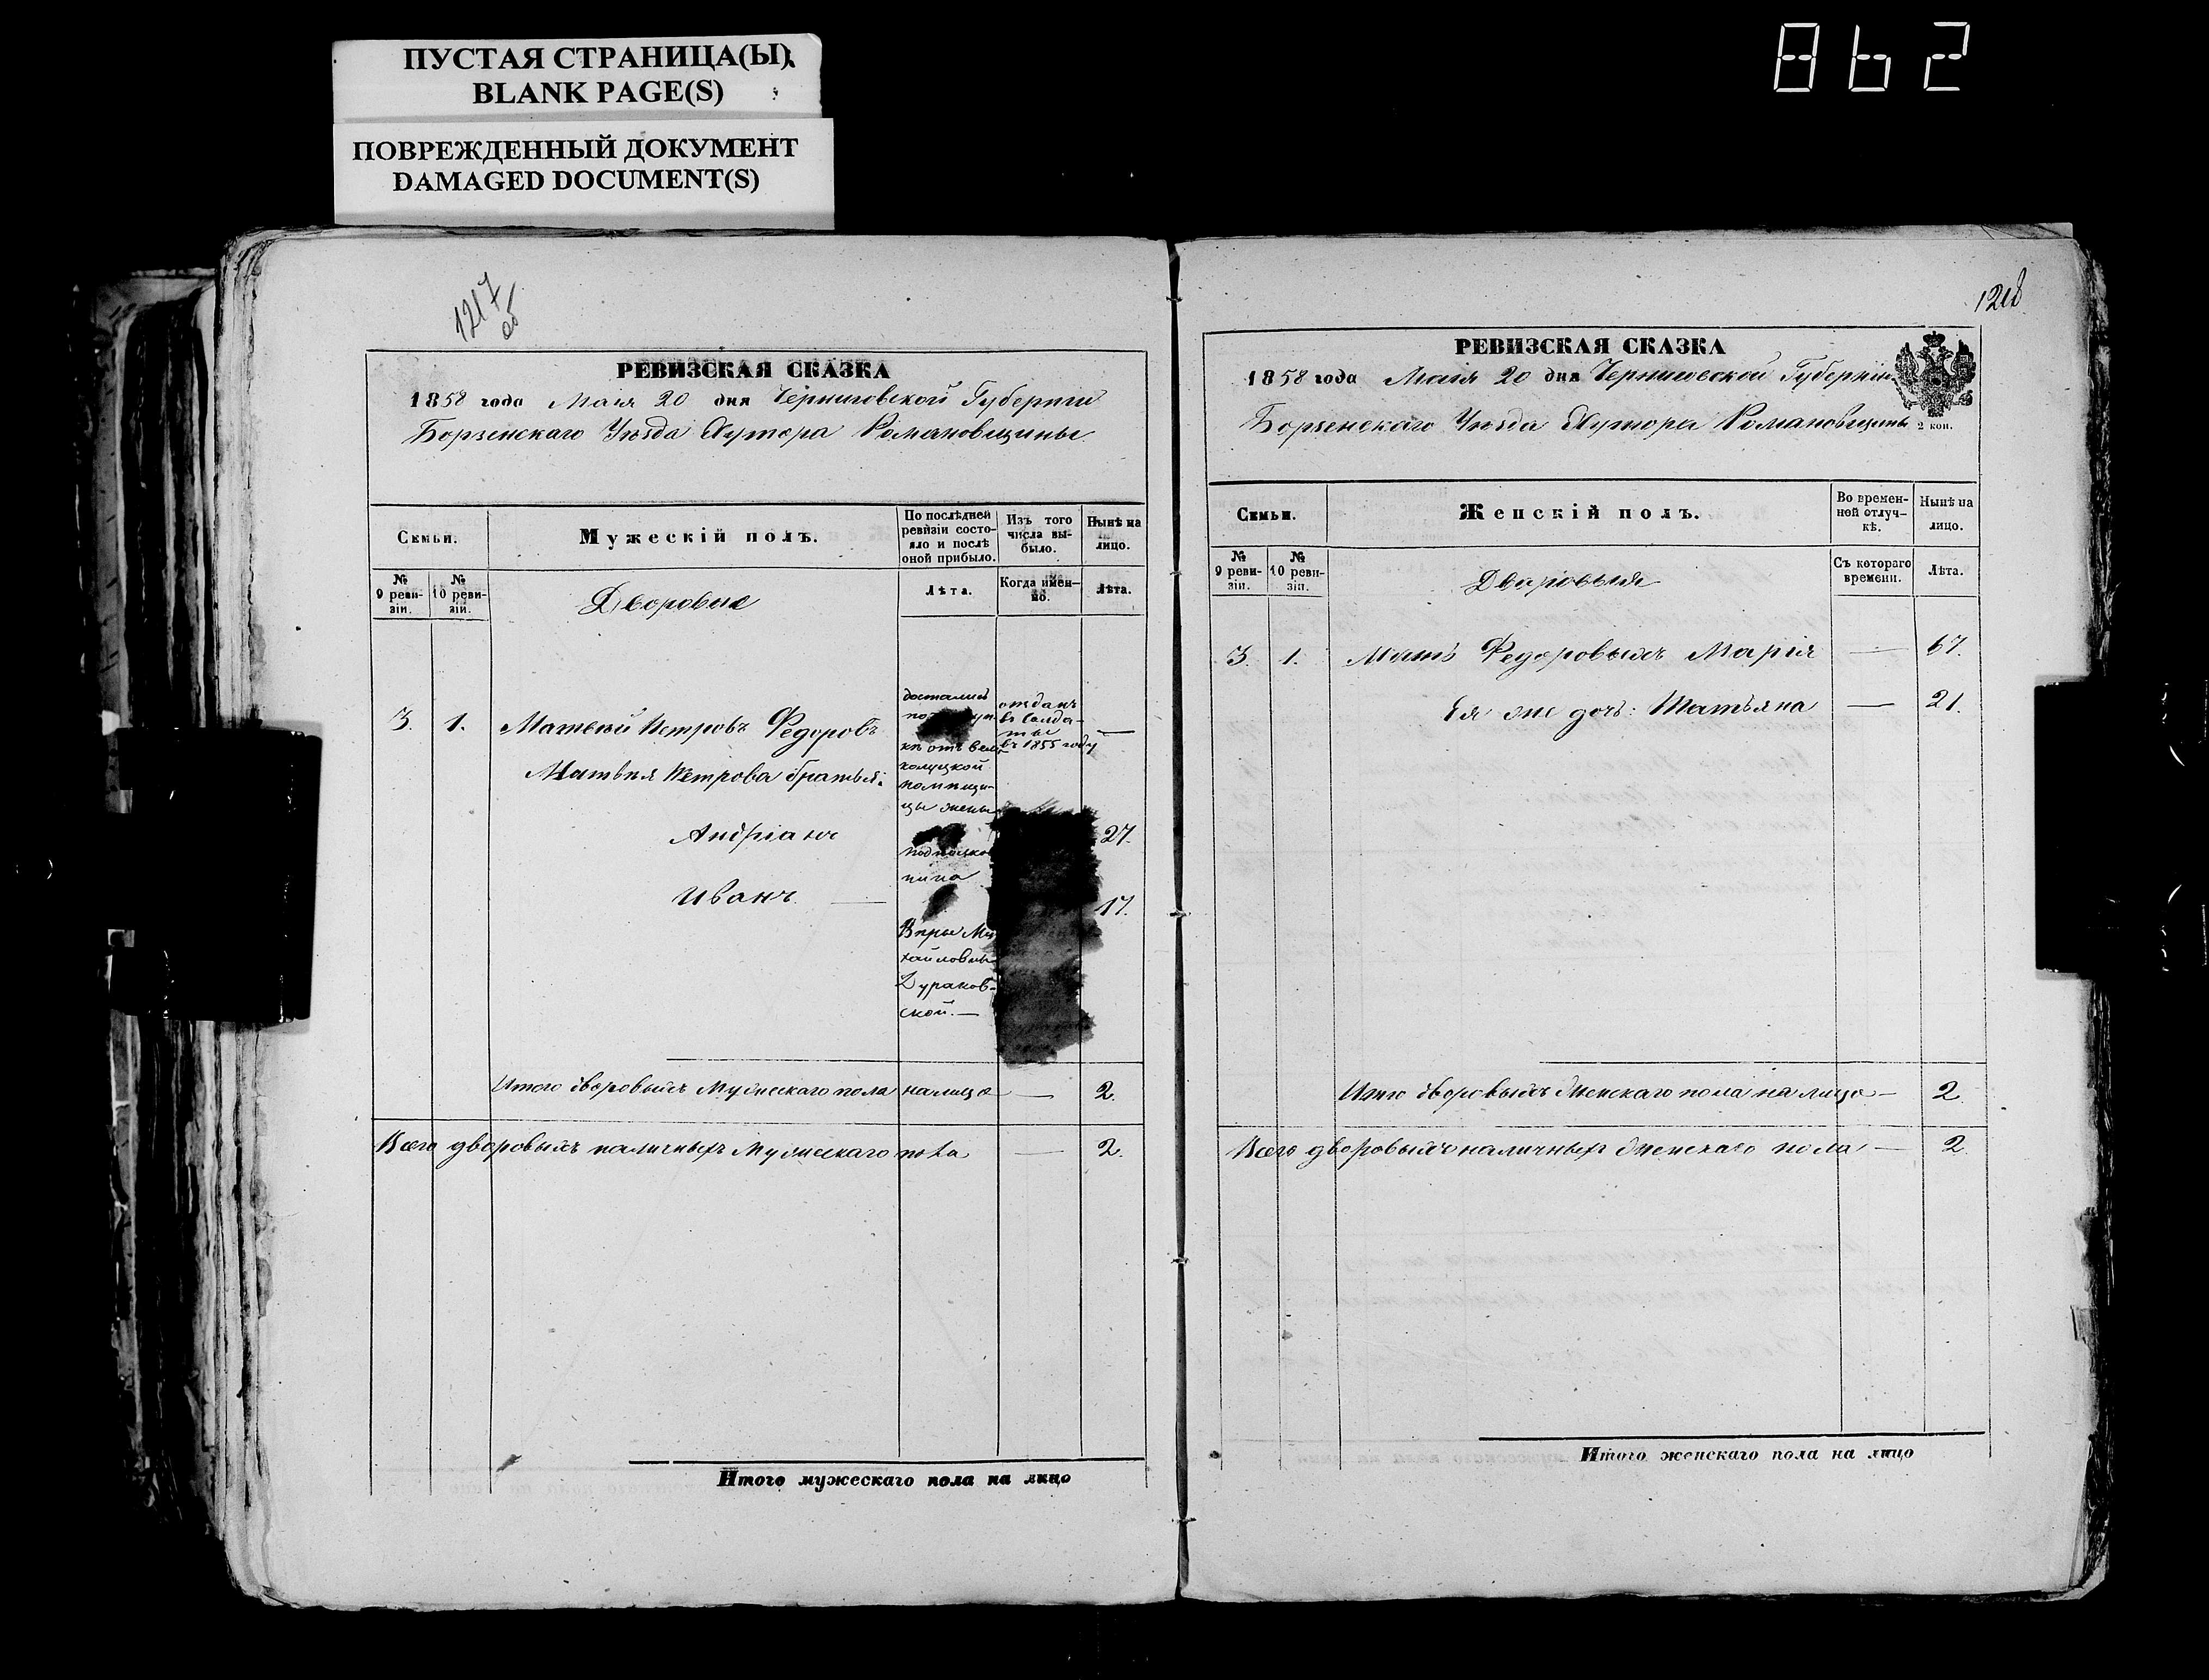 ПУСТАЯ СТРАНИЦА(Ы)
BLANK PAGE(S)
ПОВРЕЖДЕННЫЙ ДОКУМЕНТ
DAMAGED DOCUMENT(S)
862
1217
об
РЕВИЗСКАЯ СКАЗКА
1858 года Маія 20 дня Черниговской Губерніи
Борзенскаго Уѣзда Хутора Романовщины
Семьи.
Мужескій полъ.
По послѣдней
ревизіи состо-
яло и послѣ
оной прибыло.
Изъ того
числа вы-
было.
Нынѣ на
лицо.
№
9 реви-
зіи.
№
10 реви-
зіи.
Дворовые
Лѣта.
Когда имен-
но.
Лѣта.
3. 1. Матвѣй Петровъ Федоровъ
достались
по
кѣ отъ вели-
колуцкой
помѣщи-
цы жены
подполков
ника
Вѣры Ми
хайловны
Дураков-
ской. —
отданъ
въ солда-
ты
въ 1855 году
—
Матвѣя Петрова братья:
Андріанъ 27.
Иванъ — 17.
Итого дворовыхъ мужескаго пола налицо — 2.
Всего дворовыхъ наличныхъ мужескаго пола — 2.
Итого мужескаго пола на лицо
1218
РЕВИЗСКАЯ СКАЗКА
1858 года Маія 20 дня Черниговской Губерніи
Борзенскаго Уѣзда Хутора Романовщины
2 коп.
Семьи.
Женскій полъ.
Во времен-
ной отлуч-
кѣ.
Нынѣ на
лицо.
№
9 реви-
зіи.
№
10 реви-
зіи.
Дворовыя
Съ котораго
времени.
Лѣта.
3. 1. Мать Федоровыхъ Марія — 67.
Ея же дочь: Татьяна — 21.
Итого дворовыхъ женскаго пола на лицо — 2.
Всего дворовыхъ наличныхъ женскаго пола — 2
Итого женскаго пола на лицо